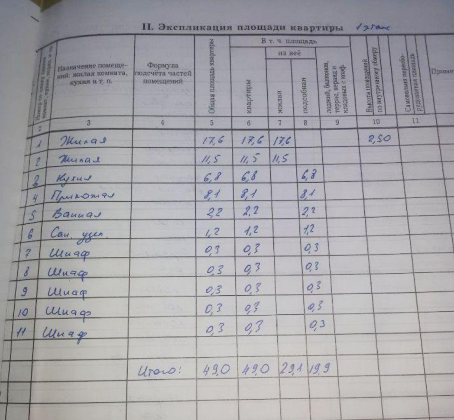 II. Экспликация площади квартиры 1 этаж
Назначение помеще- ний: жилая комната, кухня и т. п. Формула подсчёта частей помещений Общая площадь квартиры В т. ч. площадь
квартиры из неё жилая подсобная лоджий, балконов, террас, веранд и кладовых с коэф. Высота помещений по внутреннему обмеру
3 4 5 6 7 8 9 10 11
1 Жилая 17,6 17,6 17,6 2,50
2 Жилая 11,5 11,5 11,5
3 Кухня 6,8 6,8 6,8
4 Прихожая 8,1 8,1 8,1
5 Ванная 2,2 2,2 2,2
6 Сан. узел 1,2 1,2 1,2
7 Шкаф 0,3 0,3 0,3
8 Шкаф 0,3 0,3 0,3
9 Шкаф 0,3 0,3 0,3
10 Шкаф 0,3 0,3 0,3
11 Шкаф 0,3 0,3 0,3
Итого: 49,0 49,0 29,1 19,9